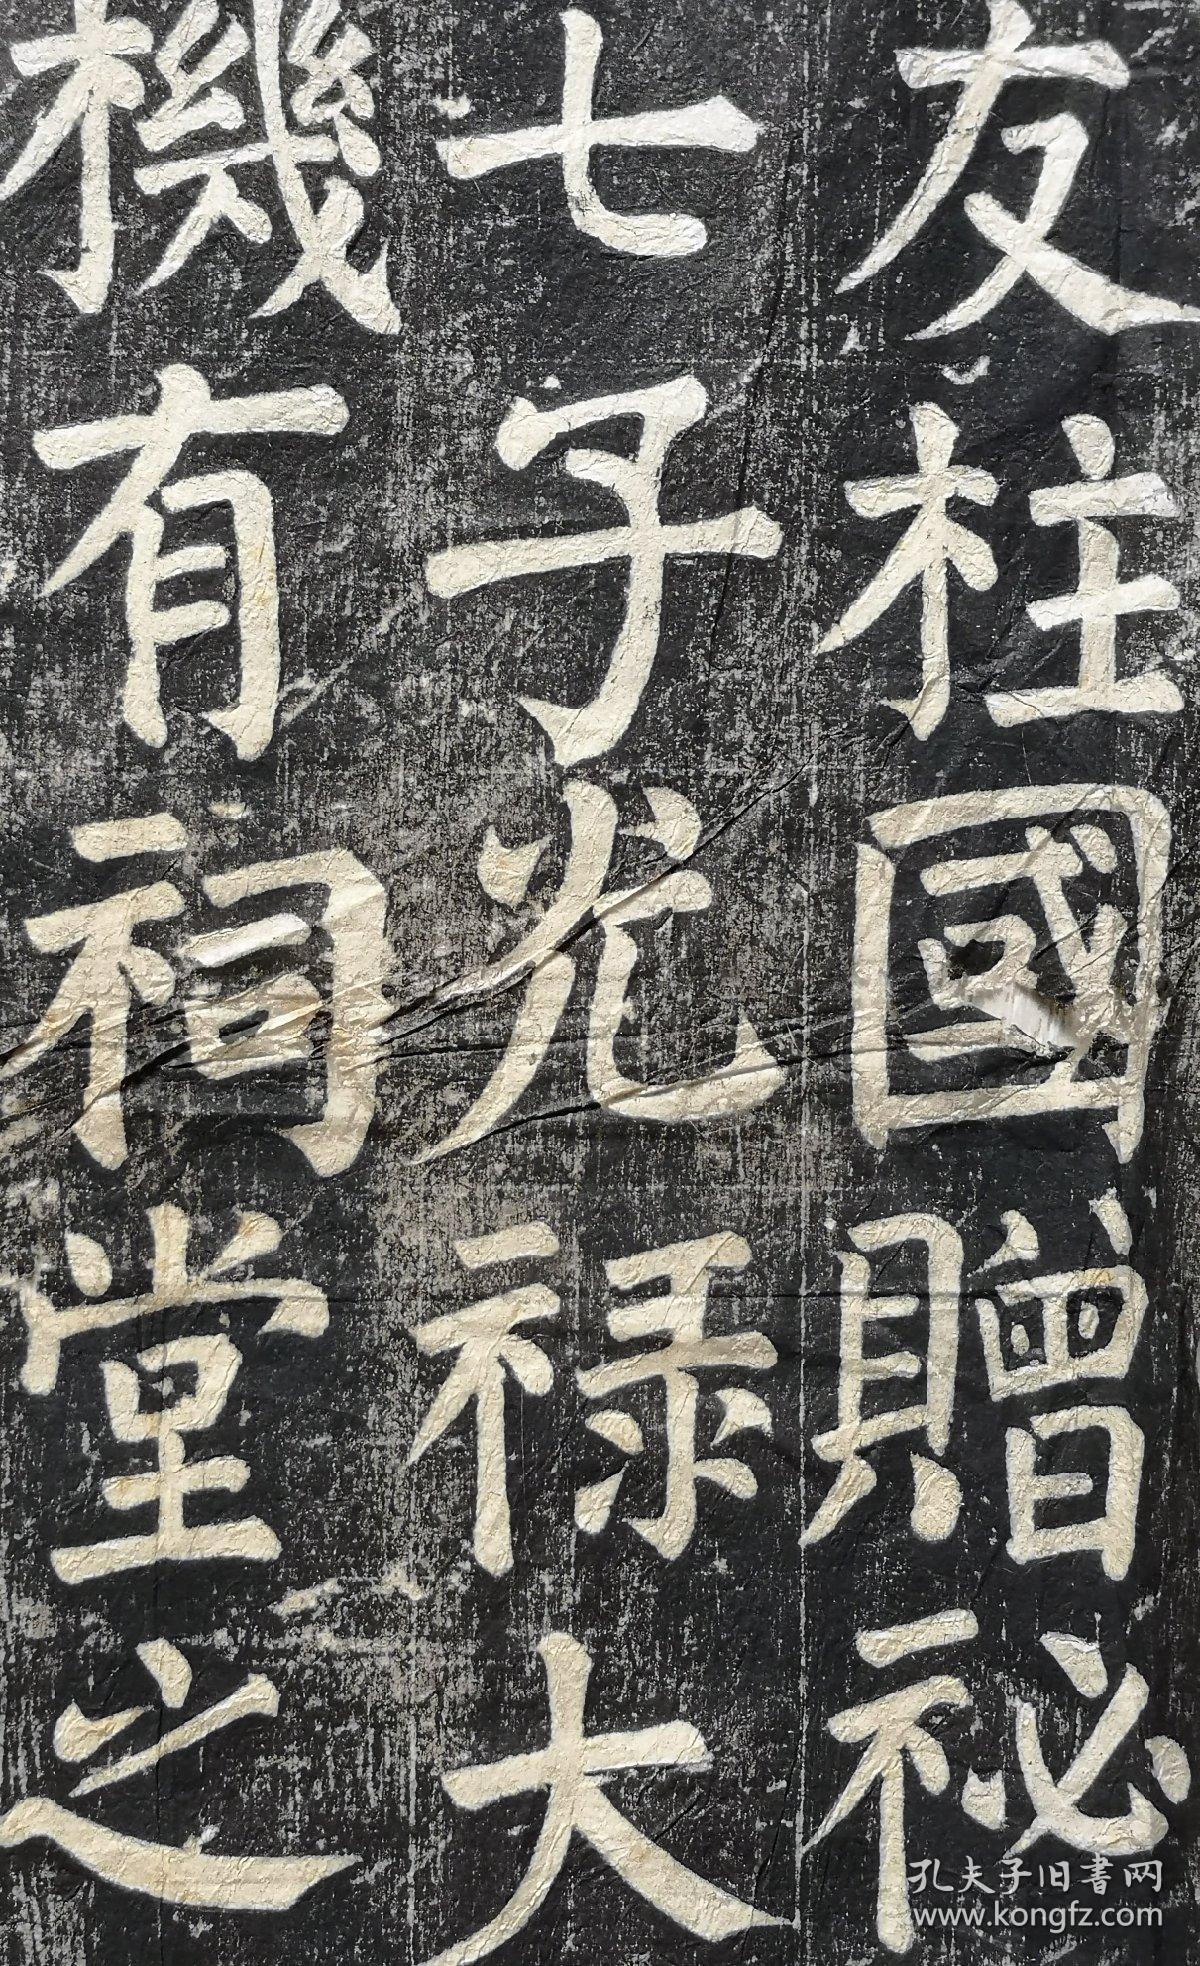 友柱國贈祕
七子光禄大
機有祠堂之
孔夫子旧書网
www.kongfz.com